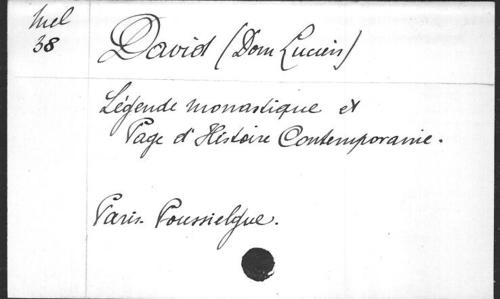 Mel
38
David (Dom Lucien)
Légende monastique et
Page d'Histoire Contemporaine.
Paris. Poussielgue.